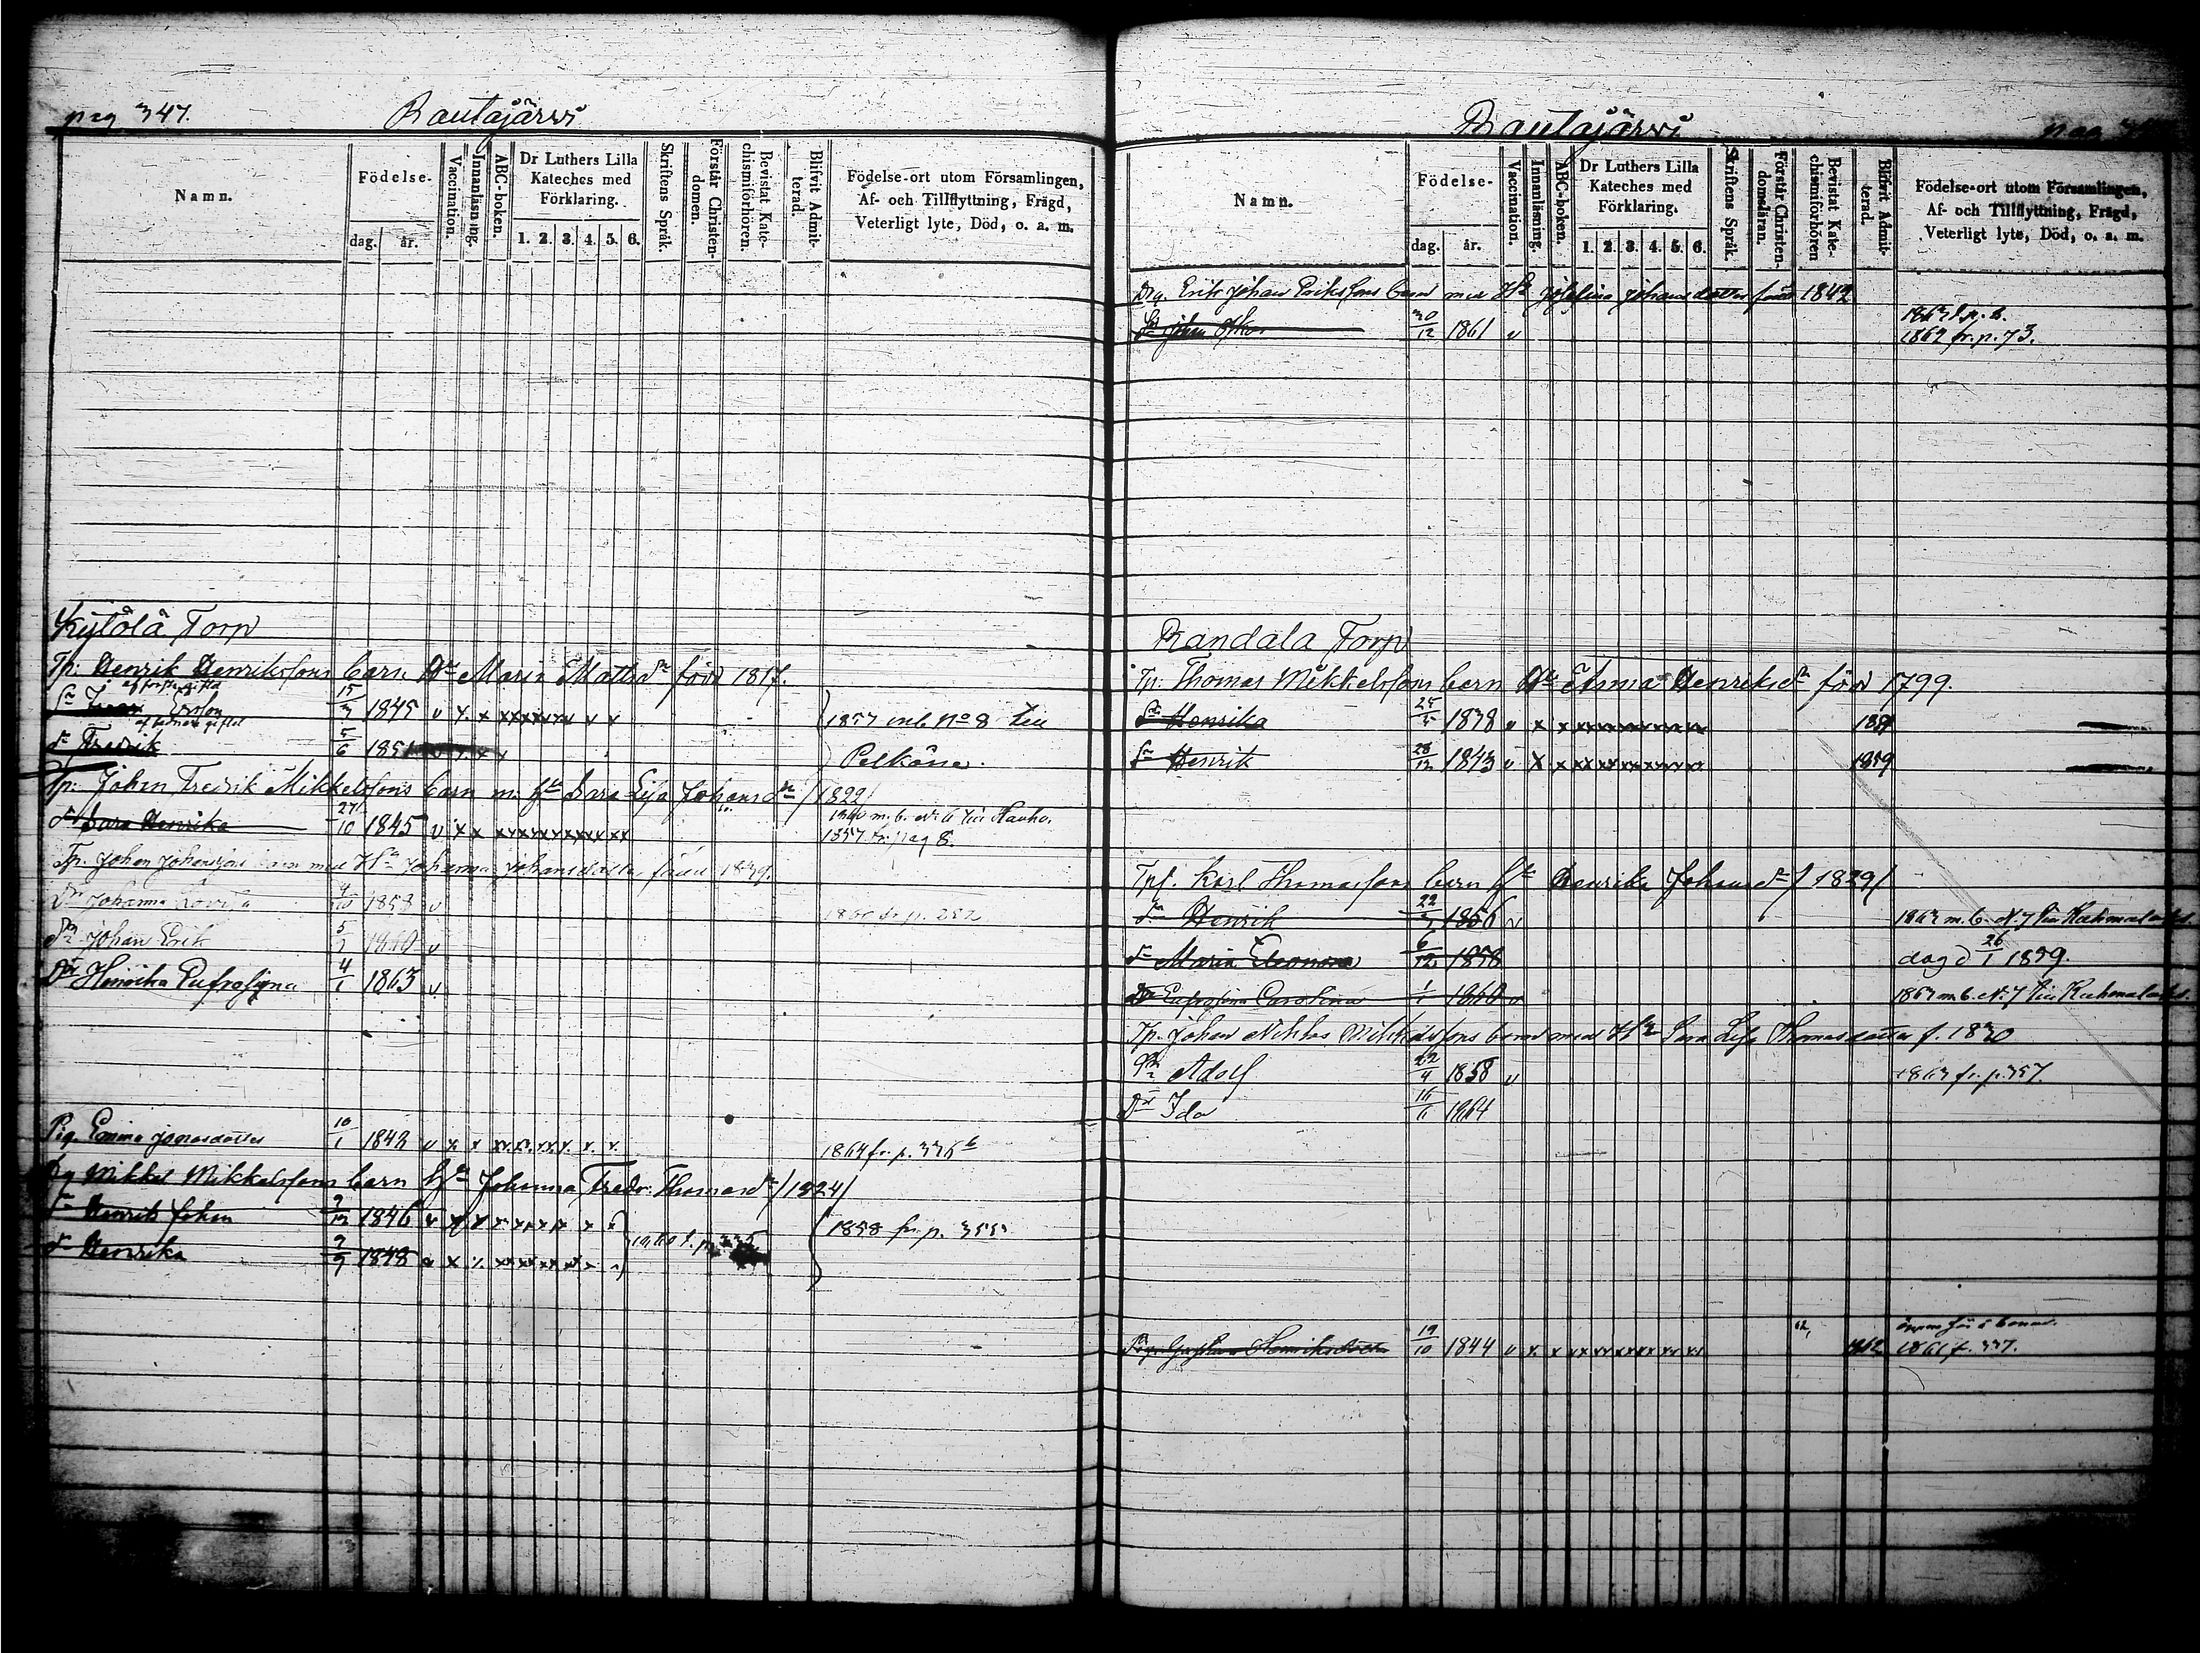 pag 347.
Rautajärvi
Namn.
Födelse-
dag.
år.
Vaccination.
Innanläsning.
ABC-boken.
Dr Luthers Lilla
Kateches med
Förklaring.
1. 2. 3. 4. 5. 6.
Skriftens Språk.
Förstår Christen-
domen.
Bevistat Kate-
chismiförhören.
Blifvit Admit-
terad.
Födelse-ort utom Församlingen,
Af- och Tillflyttning, Frägd,
Veterligt lyte, Död, o. a. m.
Kytölä Torp
Tp: Henrik Henrikssons barn Hu Maria Mattsdr född 1817.
af förra giftet
15/3 1845 v x x xxxxxxx v x
1857 mb No 8 till
af senare giftet
Sn Fredrik 5/6 1851
Pelkäne.
Tp: Johan Fredrik Mikkelsons barn m. hu Sara Lisa Johansdr /1822/
1860 m. b. N. 6 till Hauho.
Dr Sara Henrika 27/10 1845 v x x xxxxxxxxxxx
1857 fr. pag 8.
Tp. Johan Johansson barn med Hu Johanna Johansdotter född 1839.
Dr Johanna Lovisa 4/10 1858 v
1860 fr. p. 252
Sn Johan Erik 5/3 1860 v
Dr Henrika Eufrosyna 4/1 1863 v
Pig. Emma Jonasdotter 10/1 1842 v x x xx.xx.xx.x. x. x.
1864 fr. p. 336 b
Mikkel Mikkelssons barn hu Johanna Fredr. Thomasdr /1824/
Sn Henrik Johan 9/12 1846 v x x x x x x x x
1858 fr. p. 355
Dr Henrika 9/9 1848 v x x xxxxxxx
1860 t. p. 335
Rautajärvi
Namn.
Födelse-
dag.
år.
Vaccination.
Innanläsning.
ABC-boken.
Dr Luthers Lilla
Kateches med
Förklaring.
1. 2. 3. 4. 5. 6.
Skriftens Språk.
Förstår Christen-
domsläran.
Bevistat Kate-
chismiförhören
Blifvit Admit-
terad.
Födelse-ort utom Församlingen,
Af- och Tillflyttning, Frägd,
Veterligt lyte, Död, o. a. m.
Drg. Erik Johan Erikssons barn med Hu Josefina Johansdotter född 1842
Sn Johan Oskar 30/12 1861 v
1862 fr. p. 73.
Randala Torp
Tp: Thomas Mikkelssons barn Hu Anna Henriksdr född 1799.
Dr Henrika 25/5 1838 v x x xxxxxxxxxxx
Sn Henrik 28/12 1843 v x x xxxxxxxxxxx 1859
Tpf. Karl Thomassons barn hu Henrika Johansdr /1829/
Sn Henrik 22/3 1856 v
1863 m. b. N. 7 till
Dr Maria Eleonora 6/12 1858
dog d 26/1 1859.
Dr Eufrosina Carolina 1/1 1860 v
1863 m. b. N. 7 till
Tp. Johan Niklas Mikkelssons barn med Hu Sara Lisa Thomasdotter f. 1830
Sn Adolf 22/4 1858 v
1863 fr. p. 357.
Dr Ida 16/11 1864
Pig. Gustava Henriksdotter 19/10 1844 v x. x xx xx xx xx xx xx 62, 1862
1861 f. 337.